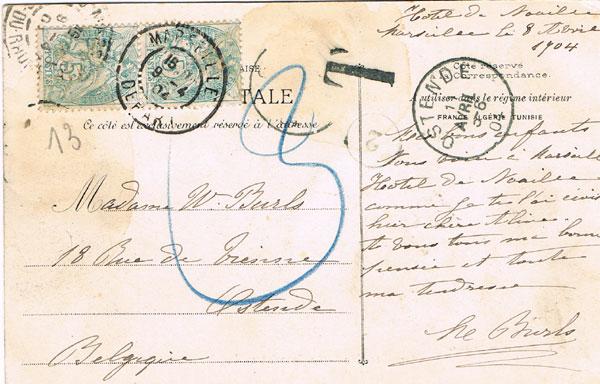 Hotel de Noailles
Marseille le 8 Avril
1904
MARSEILLE
15
9
04
OSTENDE
AVRIL
T
TALE
Côté réservé
à la Correspondance.
A utiliser dans le régime intérieur
FRANCE ALGÉRIE TUNISIE
Ce côté est exclusivement réservé à l'adresse
13
3
5
Madame W. Burls
18 Rue de Vienne
Ostende
Belgique
enfants
à Marseille
Hotel de Noailles
comme je te l'ai
hier chère Aline.
vous tous ma bonne
pensée et toute
ma tendresse
Burls